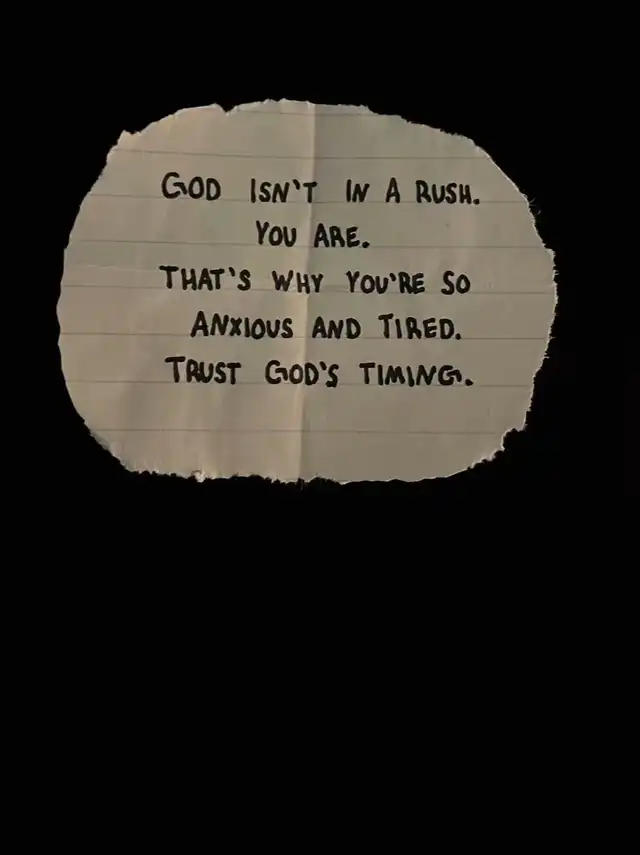 GOD ISN'T IN A RUSH.
YOU ARE.
THAT'S WHY YOU'RE SO
ANXIOUS AND TIRED.
TRUST GOD'S TIMING.